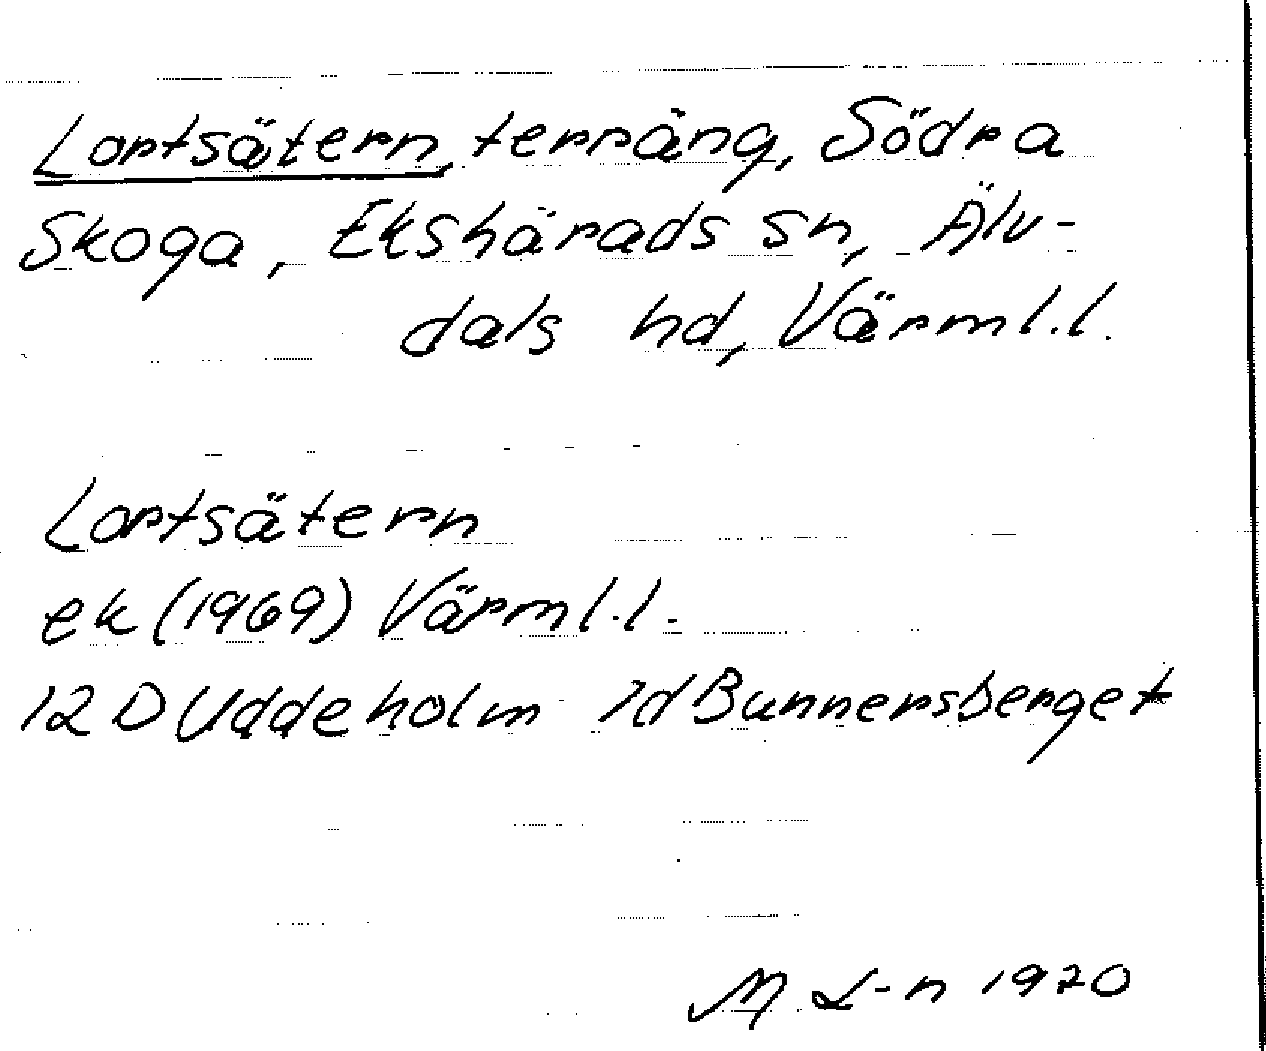 Lortsätern, terräng, Södra
Skoga, Ekshärads sn, Älv-
dals hd, Värml.l.
Lortsätern
ek (1969) Värml.l.
12 D Uddeholm 7d Bunnersberget
M L-n 1970